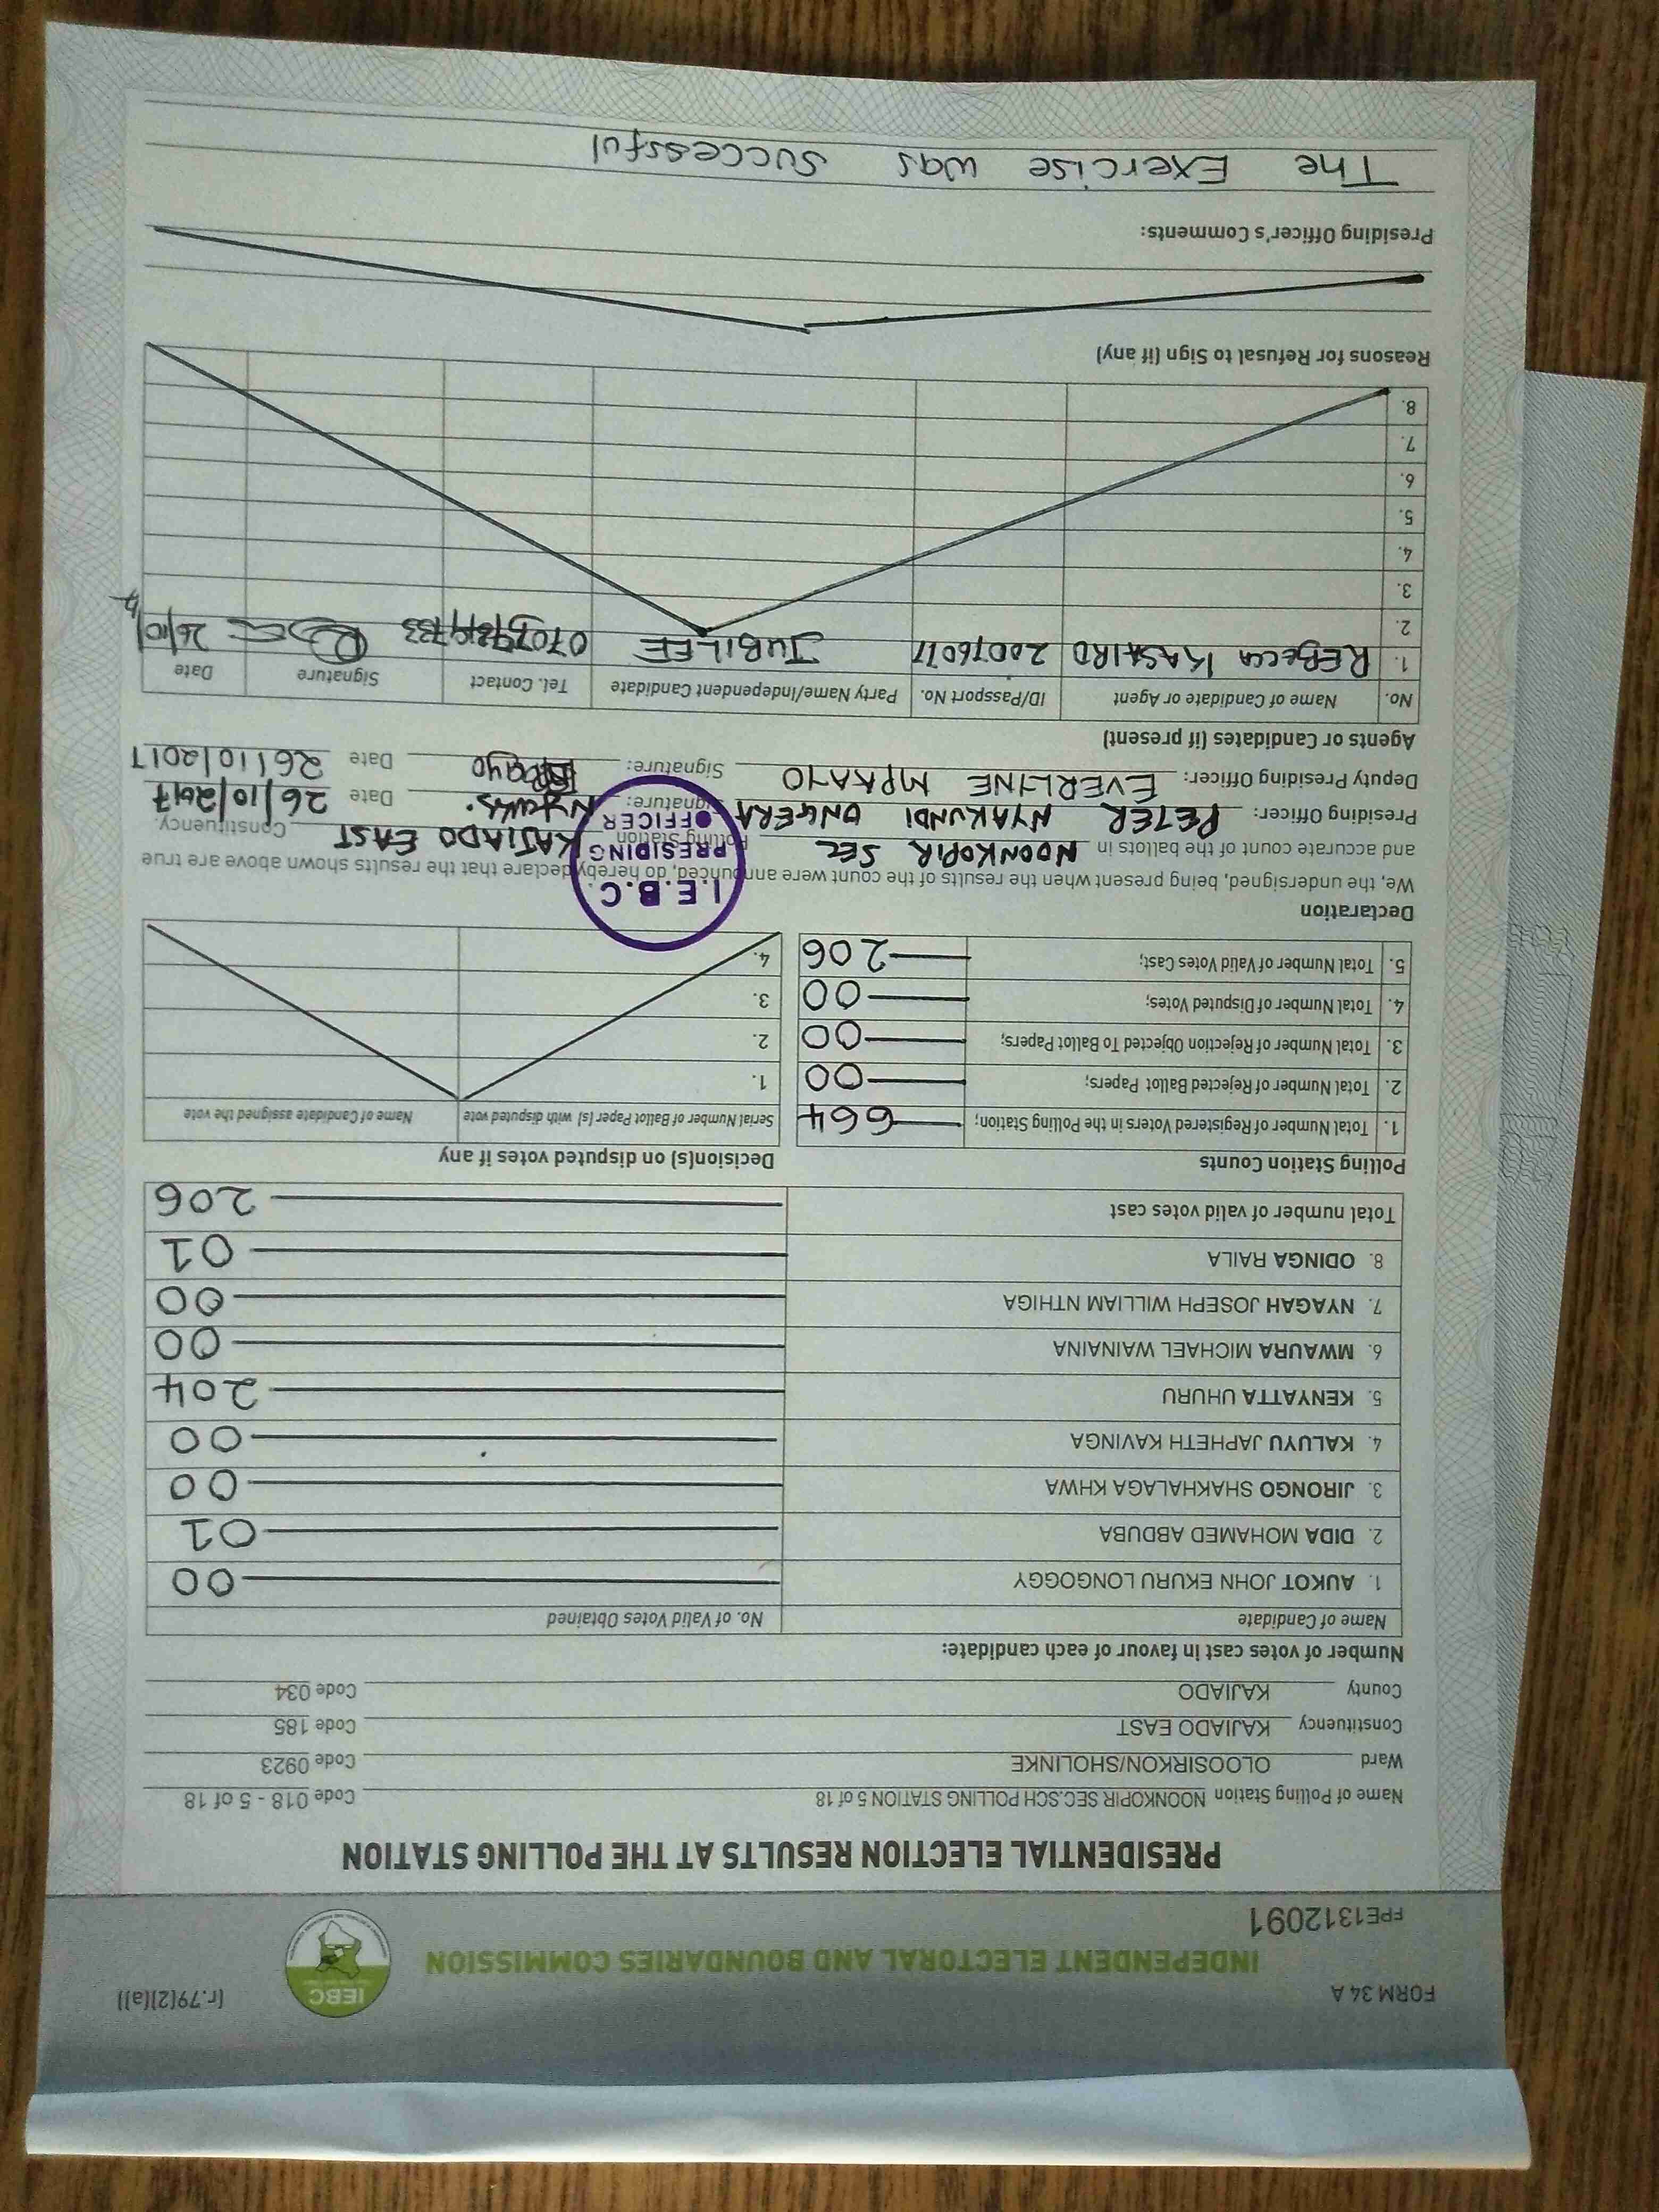 FORM 34 A
(r.79(2)(a))
INDEPENDENT ELECTORAL AND BOUNDARIES COMMISSION
IEBC
FPE1312091
PRESIDENTIAL ELECTION RESULTS AT THE POLLING STATION
Name of Polling Station NOONKOPIR SEC.SCH POLLING STATION 5 of 18 Code 018 - 5 of 18
Ward OLOOSIRKON/SHOLINKE Code 0923
Constituency KAJIADO EAST Code 185
County KAJIADO Code 034
Number of votes cast in favour of each candidate:
Name of Candidate No. of Valid Votes Obtained
1. AUKOT JOHN EKURU LONGOGGY 00
2. DIDA MOHAMED ABDUBA 01
3. JIRONGO SHAKHALAGA KHWA 00
4. KALUYU JAPHETH KAVINGA 00
5. KENYATTA UHURU 204
6. MWAURA MICHAEL WAINAINA 00
7. NYAGAH JOSEPH WILLIAM NTHIGA 00
8. ODINGA RAILA 01
Total number of valid votes cast 206
Polling Station Counts
1. Total Number of Registered Voters in the Polling Station; 664
2. Total Number of Rejected Ballot Papers; 00
3. Total Number of Rejection Objected To Ballot Papers; 00
4. Total Number of Disputed Votes; 00
5. Total Number of Valid Votes Cast; 206
Decision(s) on disputed votes if any
Serial Number of Ballot Paper (s) with disputed vote Name of Candidate assigned the vote
1.
2.
3.
4.
Declaration
We, the undersigned, being present when the results of the count were announced, do hereby declare that the results shown above are true
and accurate count of the ballots in NOONKOPIR SEC Polling Station KAJIADO EAST Constituency.
I.E.B.C.
PRESIDING
OFFICER
Presiding Officer: PETER NYAKUNDI ONGERA Signature: Date 26/10/2017
Deputy Presiding Officer: EVERLYNE MPKAYO Signature: Date 26/10/2017
Agents or Candidates (if present)
No. Name of Candidate or Agent ID/Passport No. Party Name/Independent Candidate Tel. Contact Signature Date
1. REBECCA KASAIRO 20076077 JUBILEE 26/10/17
2.
3.
4.
5.
6.
7.
8.
Reasons for Refusal to Sign (if any)
Presiding Officer's Comments:
The Exercise was successful